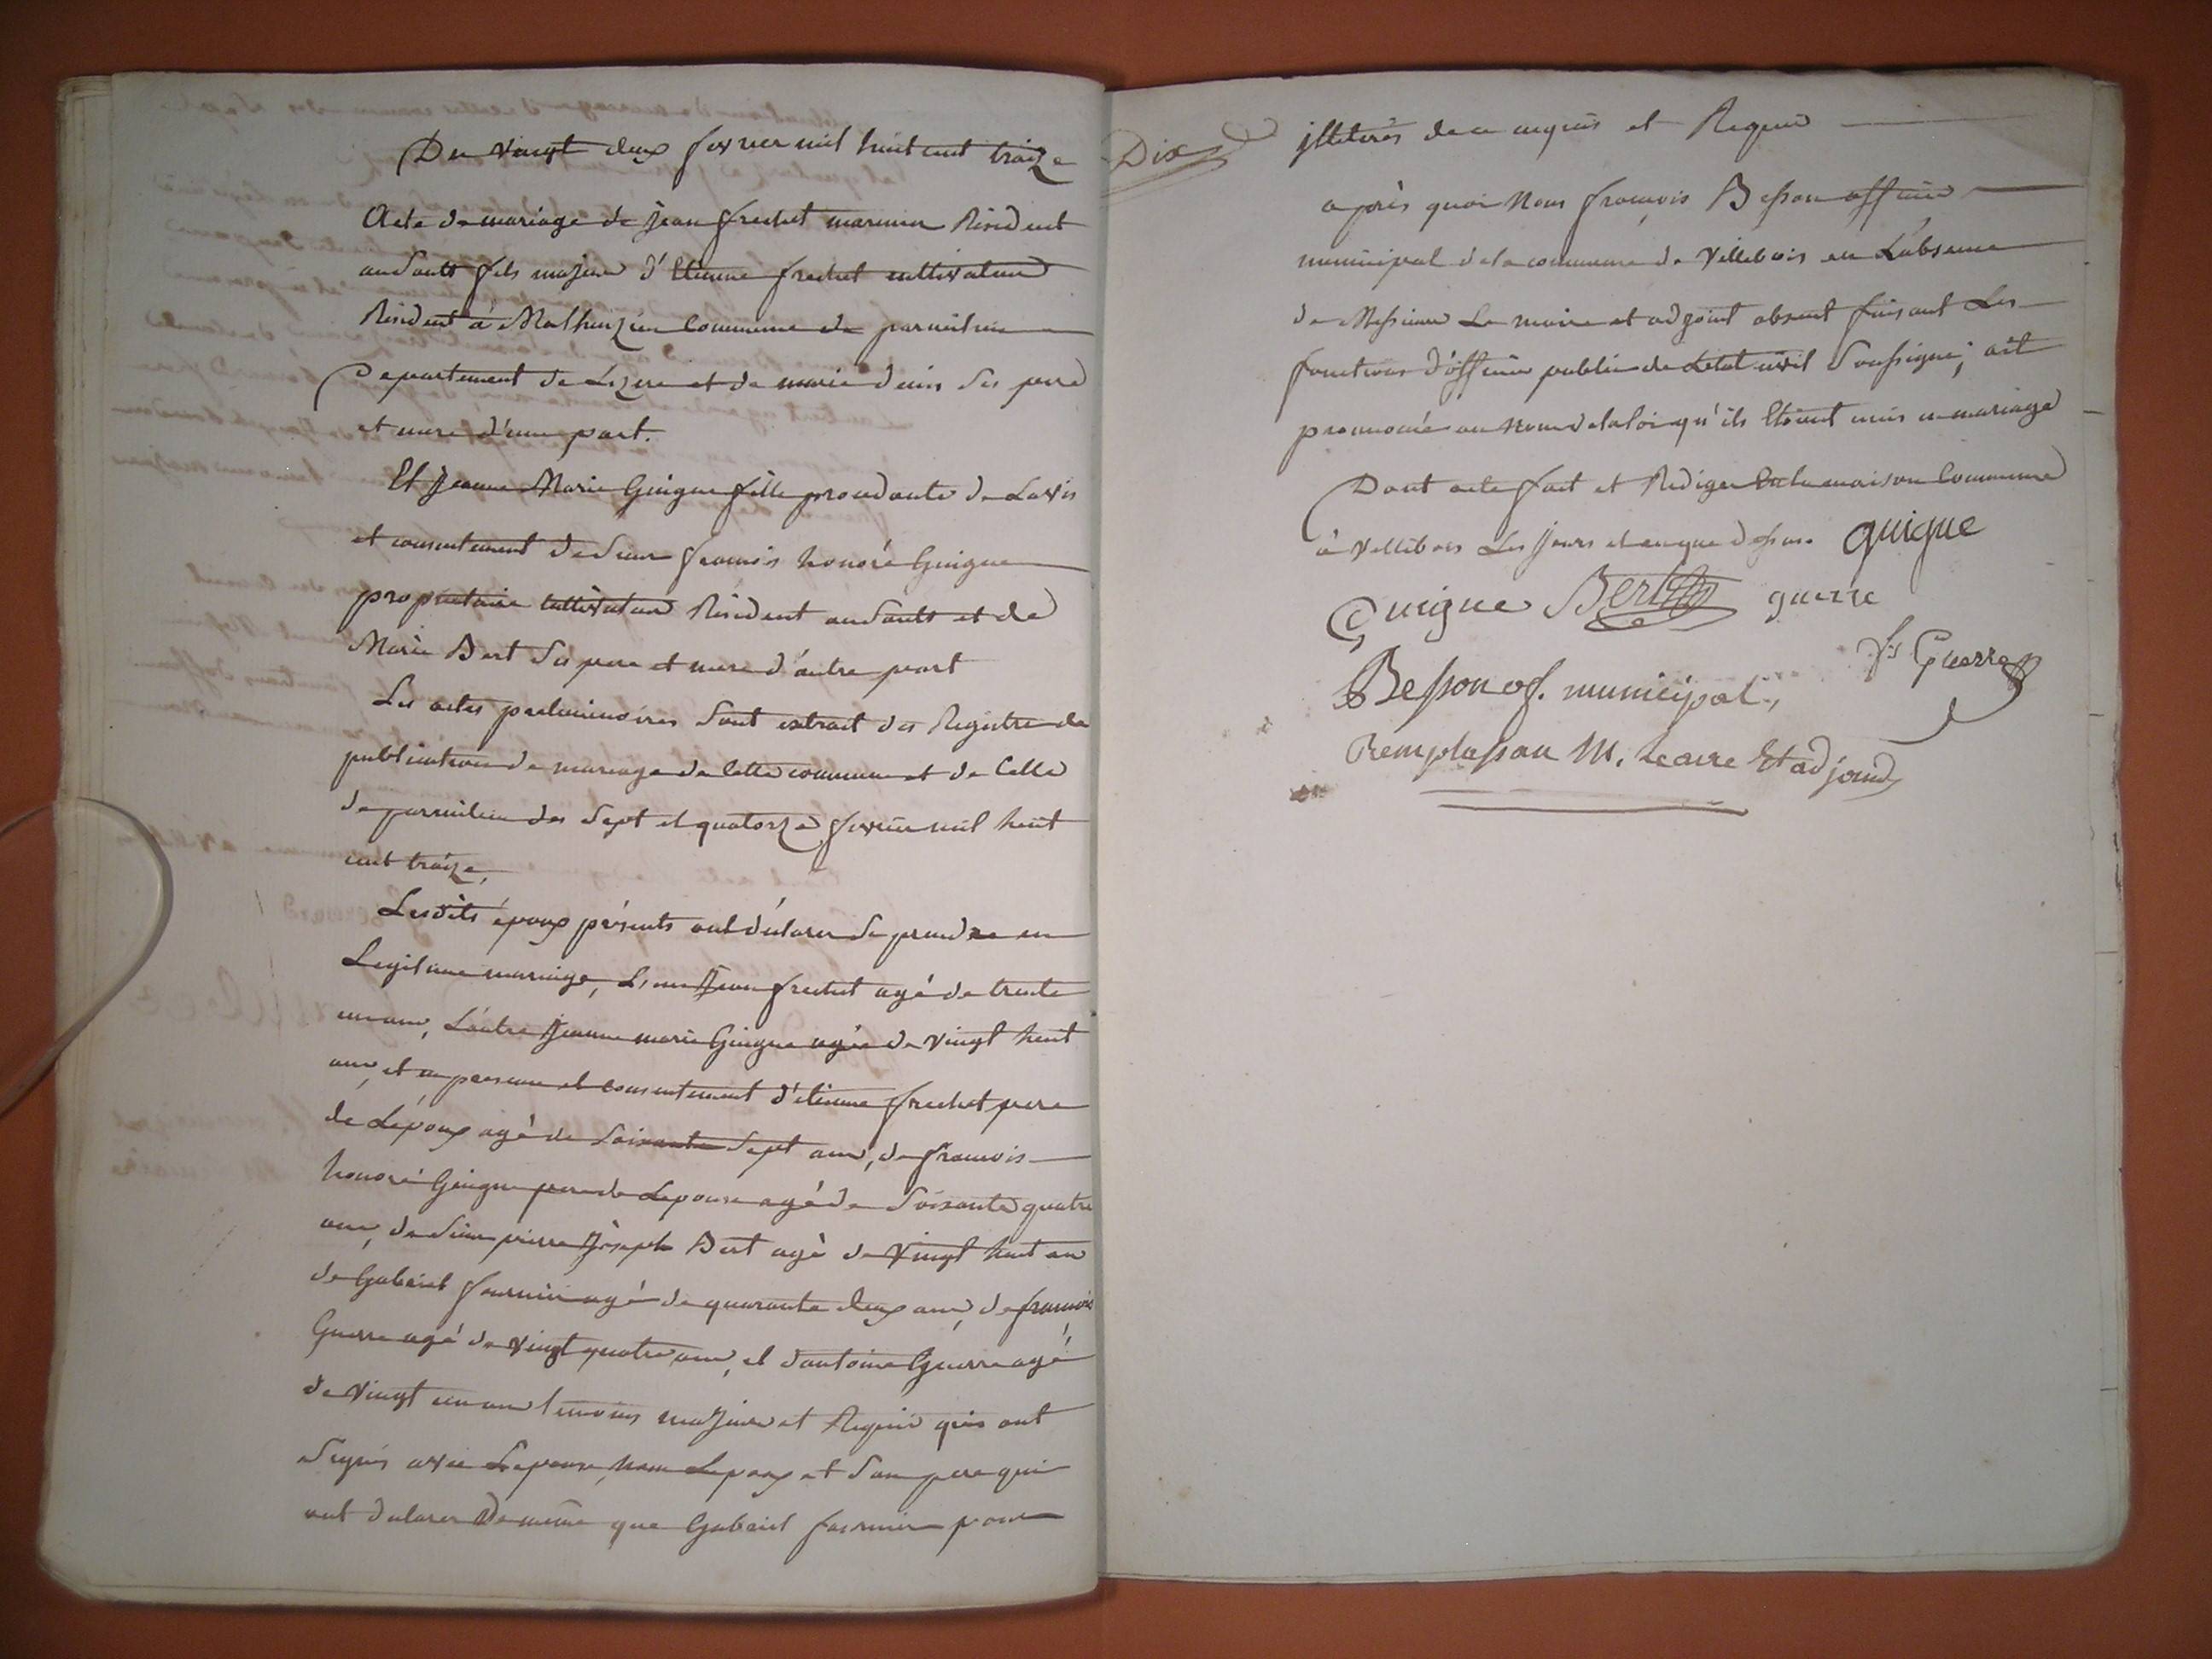 Du vingt deux fevrier mil huit cent traize
Acte de mariage de Jean frechet marinier Résident
au Sault fils majeur d'Etienne frechet cultivateur
Résident à Malhuizieu Commune de parmilieu
Departement de Lizere et de marie denis Ses pere
et mere d'une part.
Et Jeanne Marie Guigue fille procedante de Lavis
et consentement de Sieur francois honoré Guigue
propriétaire cultivateur Résident au Sault et de
Marie Bert Ses pere et mere d'autre part
Les actes preliminoires Sont extrait des Registre de
publications de mariage de Cette commune et de Celle
de parmilieu des Sept et quatorze fevrier mil huit
cent traize,
Lesdits époux présents ont déclarer Se prendre en
Legitime mariage, L'un Jean frechet agé de trente
un ans, L'autre Jeanne marie Guigue agée de vingt huit
ans, et en presence et consentement d'etienne frechet pere
de Lépoux agé de Soixante Sept ans, de francois
honoré Guigue pere de Lepouse agé de Soixante quatre
ans, de Sieur pierre Joseph Bert agé de vingt huit ans
de Gabriel fournier agé de quarante deux ans, de francois
Guerre agé de vingt quatre ans, et dantoine Guerre agé
de vingt un ans temoins majeurs et Requis qui ont
Signés avec Lepouse, non Lepoux et Son pere qui
ont declarer De même que Gabriel fournier pour
Dix
illiterés de ce enquis et Requis
après quoi Nous françois Besson officier
municipal de la commune de Villebois en L'absence
de Messieurs Le maire et adjoint absent faisant Les
fonctions d'officier public de Letat civil Soussigné; ait
prononcé au Nom de la loi qu'ils Etoient unis en mariage
Dont acte fait et Rediger En la maison Commune
à Villebois Les Jours et an que dessus. guigue
Guigue Bert guerre
fs Guerre
Besson of. municipal,
Remplassan M. Le aire Et adjoind